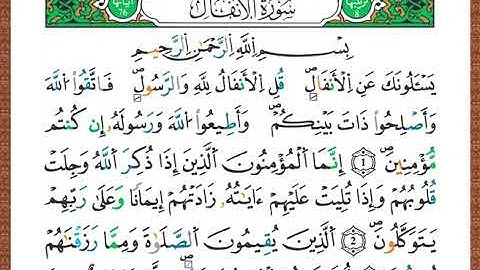 ترتيبها 8 سُورَةُ الْأَنفَالِ آياتها 76
بِسْمِ اللَّهِ الرَّحْمَٰنِ الرَّحِيمِ
يَسْـَٔلُونَكَ عَنِ الْأَنفَالِ قُلِ الْأَنفَالُ لِلَّهِ وَالرَّسُولِ فَاتَّقُوا اللَّهَ
وَأَصْلِحُوا ذَاتَ بَيْنِكُمْ وَأَطِيعُوا اللَّهَ وَرَسُولَهُۥ إِن كُنتُم
مُّؤْمِنِينَ 1 إِنَّمَا الْمُؤْمِنُونَ الَّذِينَ إِذَا ذُكِرَ اللَّهُ وَجِلَتْ
قُلُوبُهُمْ وَإِذَا تُلِيَتْ عَلَيْهِمْ ءَايَٰتُهُۥ زَادَتْهُمْ إِيمَانًا وَعَلَىٰ رَبِّهِمْ
يَتَوَكَّلُونَ 2 الَّذِينَ يُقِيمُونَ الصَّلَوٰةَ وَمِمَّا رَزَقْنَٰهُمْ